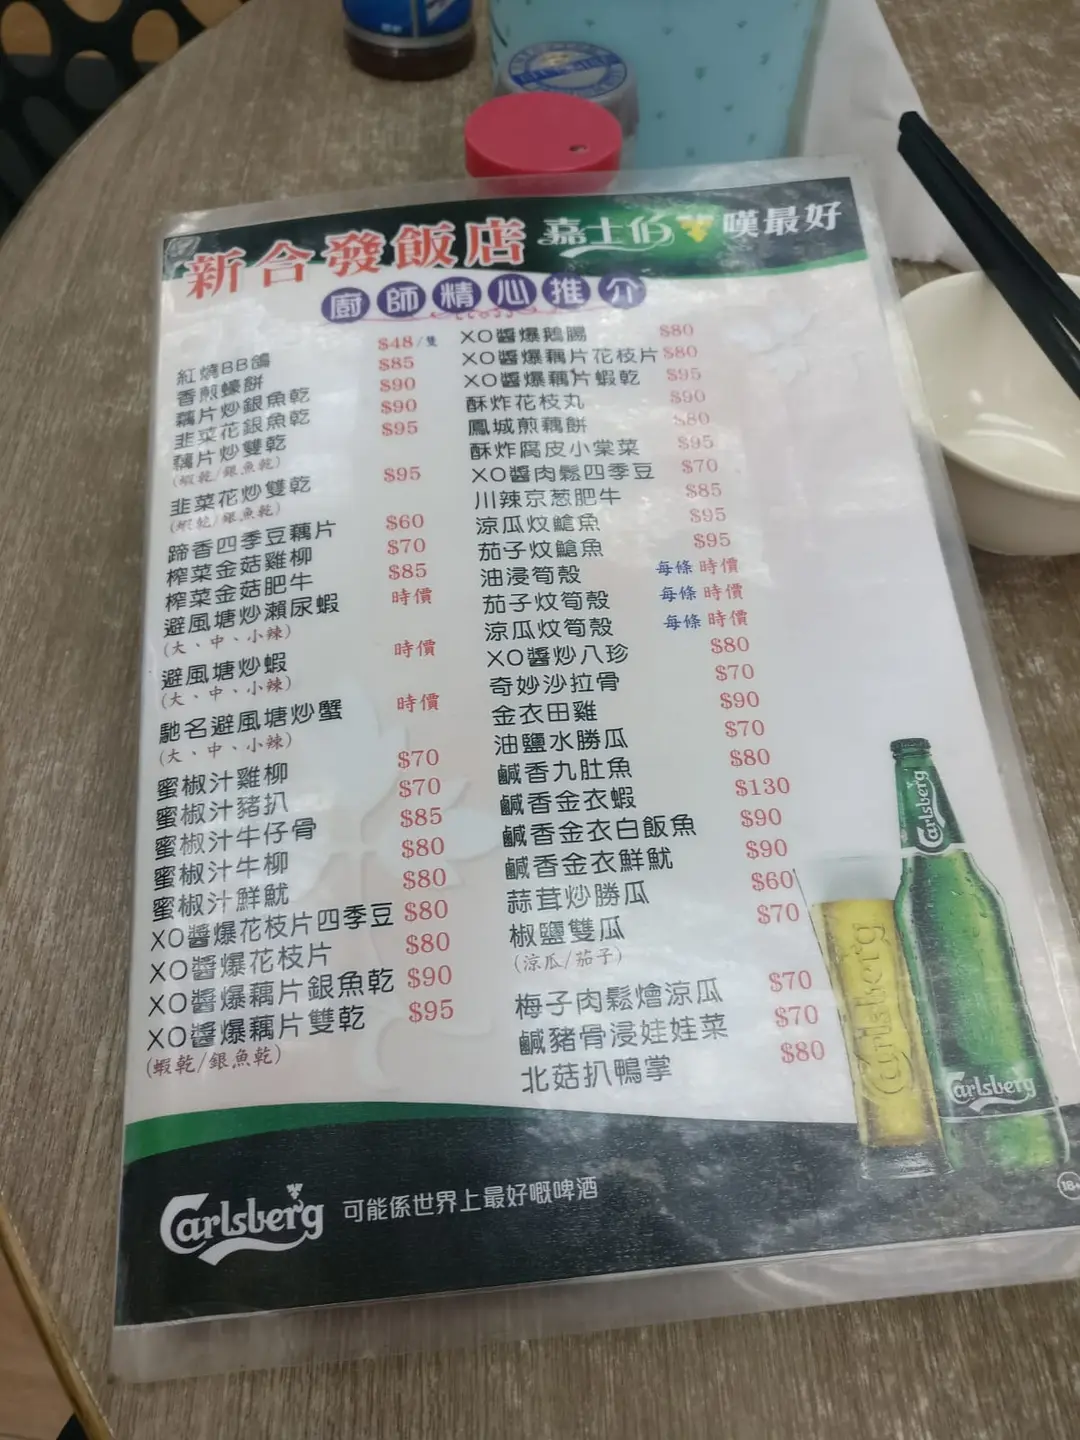 新合發飯店 嘉士伯 嘆最好
廚師精心推介
紅燒BB鴿 $48/隻
香煎蠔餅 $85
藕片炒銀魚乾 $90
韭菜花銀魚乾 $90
藕片炒雙乾 $95
(蝦乾/銀魚乾)
韭菜花炒雙乾 $95
(蝦乾/銀魚乾)
蹄香四季豆藕片 $60
榨菜金菇雞柳 $70
榨菜金菇肥牛 $85
避風塘炒瀨尿蝦 時價
(大、中、小辣)
避風塘炒蝦 時價
(大、中、小辣)
馳名避風塘炒蟹 時價
(大、中、小辣)
蜜椒汁雞柳 $70
蜜椒汁豬扒 $70
蜜椒汁牛仔骨 $85
蜜椒汁牛柳 $80
蜜椒汁鮮魷 $80
XO醬爆花枝片四季豆 $80
XO醬爆花枝片 $80
XO醬爆藕片銀魚乾 $90
XO醬爆藕片雙乾 $95
(蝦乾/銀魚乾)
XO醬爆鵝腸 $80
XO醬爆藕片花枝片 $80
XO醬爆藕片蝦乾 $95
酥炸花枝丸 $90
鳳城煎藕餅 $80
酥炸腐皮小棠菜 $95
XO醬肉鬆四季豆 $70
川辣京葱肥牛 $85
涼瓜炆鎗魚 $95
茄子炆鎗魚 $95
油浸筍殼 每條 時價
茄子炆筍殼 每條 時價
涼瓜炆筍殼 每條 時價
XO醬炒八珍 $80
奇妙沙拉骨 $70
金衣田雞 $90
油鹽水勝瓜 $70
鹹香九肚魚 $80
鹹香金衣蝦 $130
鹹香金衣白飯魚 $90
鹹香金衣鮮魷 $90
蒜茸炒勝瓜 $60
椒鹽雙瓜 $70
(涼瓜/茄子)
梅子肉鬆燴涼瓜 $70
鹹豬骨浸娃娃菜 $70
北菇扒鴨掌 $80
Carlsberg
Carlsberg
Carlsberg
Carlsberg 可能係世界上最好嘅啤酒
18+